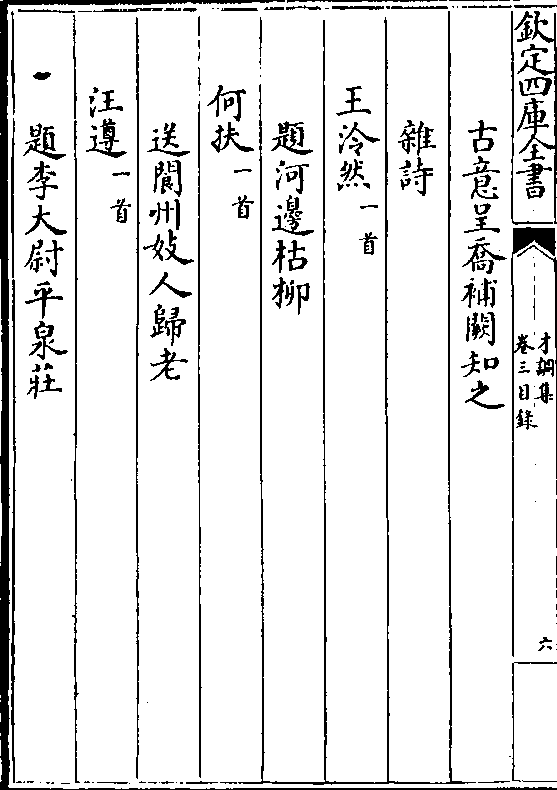 欽定四庫全書
才調集
卷三目錄
六
古意呈喬補闕知之
雜詩
王泠然一首
題河邊枯柳
何扶一首
送閬州妓人歸老
汪遵一首
題李大尉平泉莊